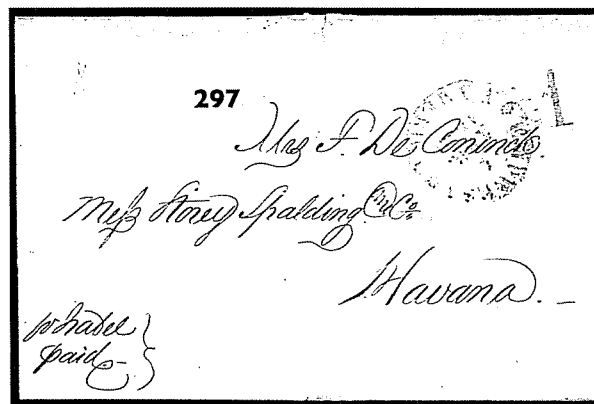 297
Mrs F. De Coninck.
Mess Storey Spalding & Co
Havana. _
pr Isabel
paid
1